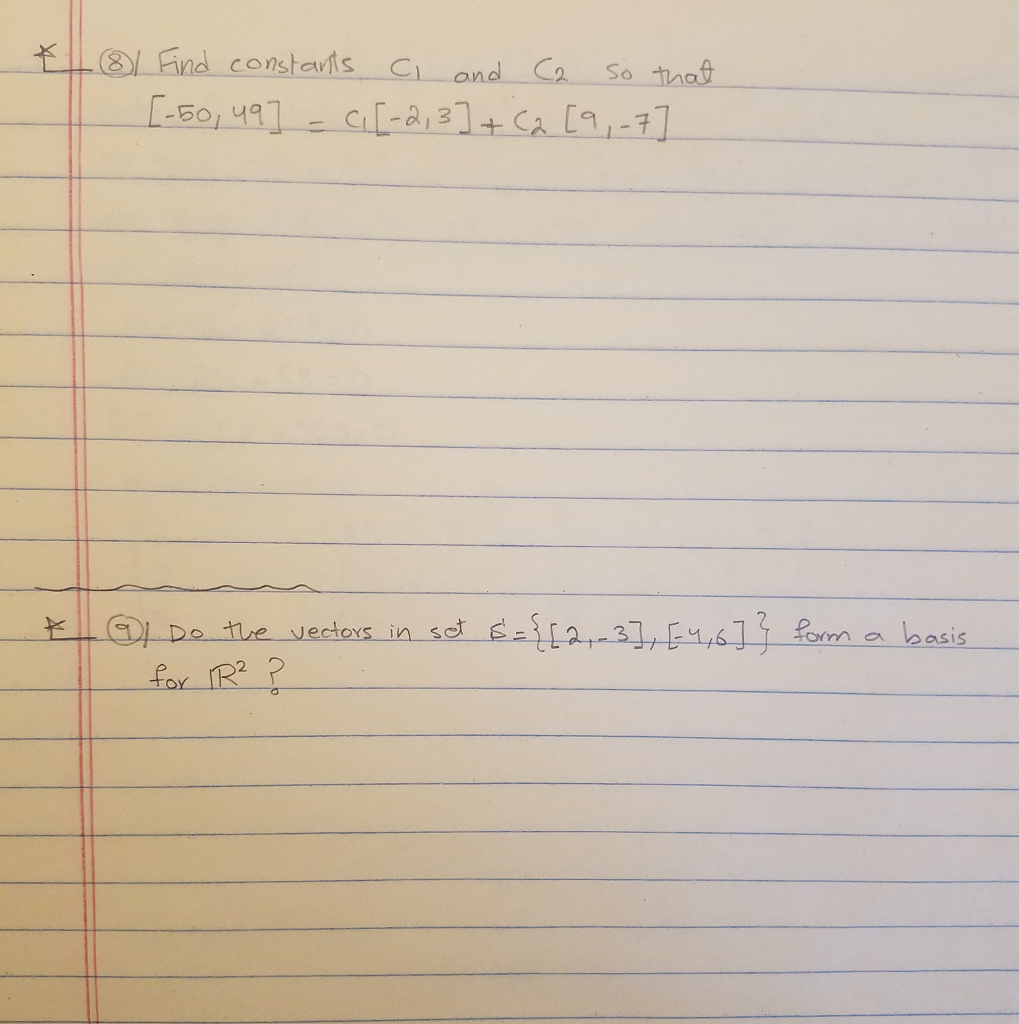 * 8) Find constants C1 and C2 so that
[-50, 49] = C1[-2,3] + C2 [9,-7]
* 9) Do the vectors in set S = {[2,-3], [-4,6]} form a basis
for ℝ² ?